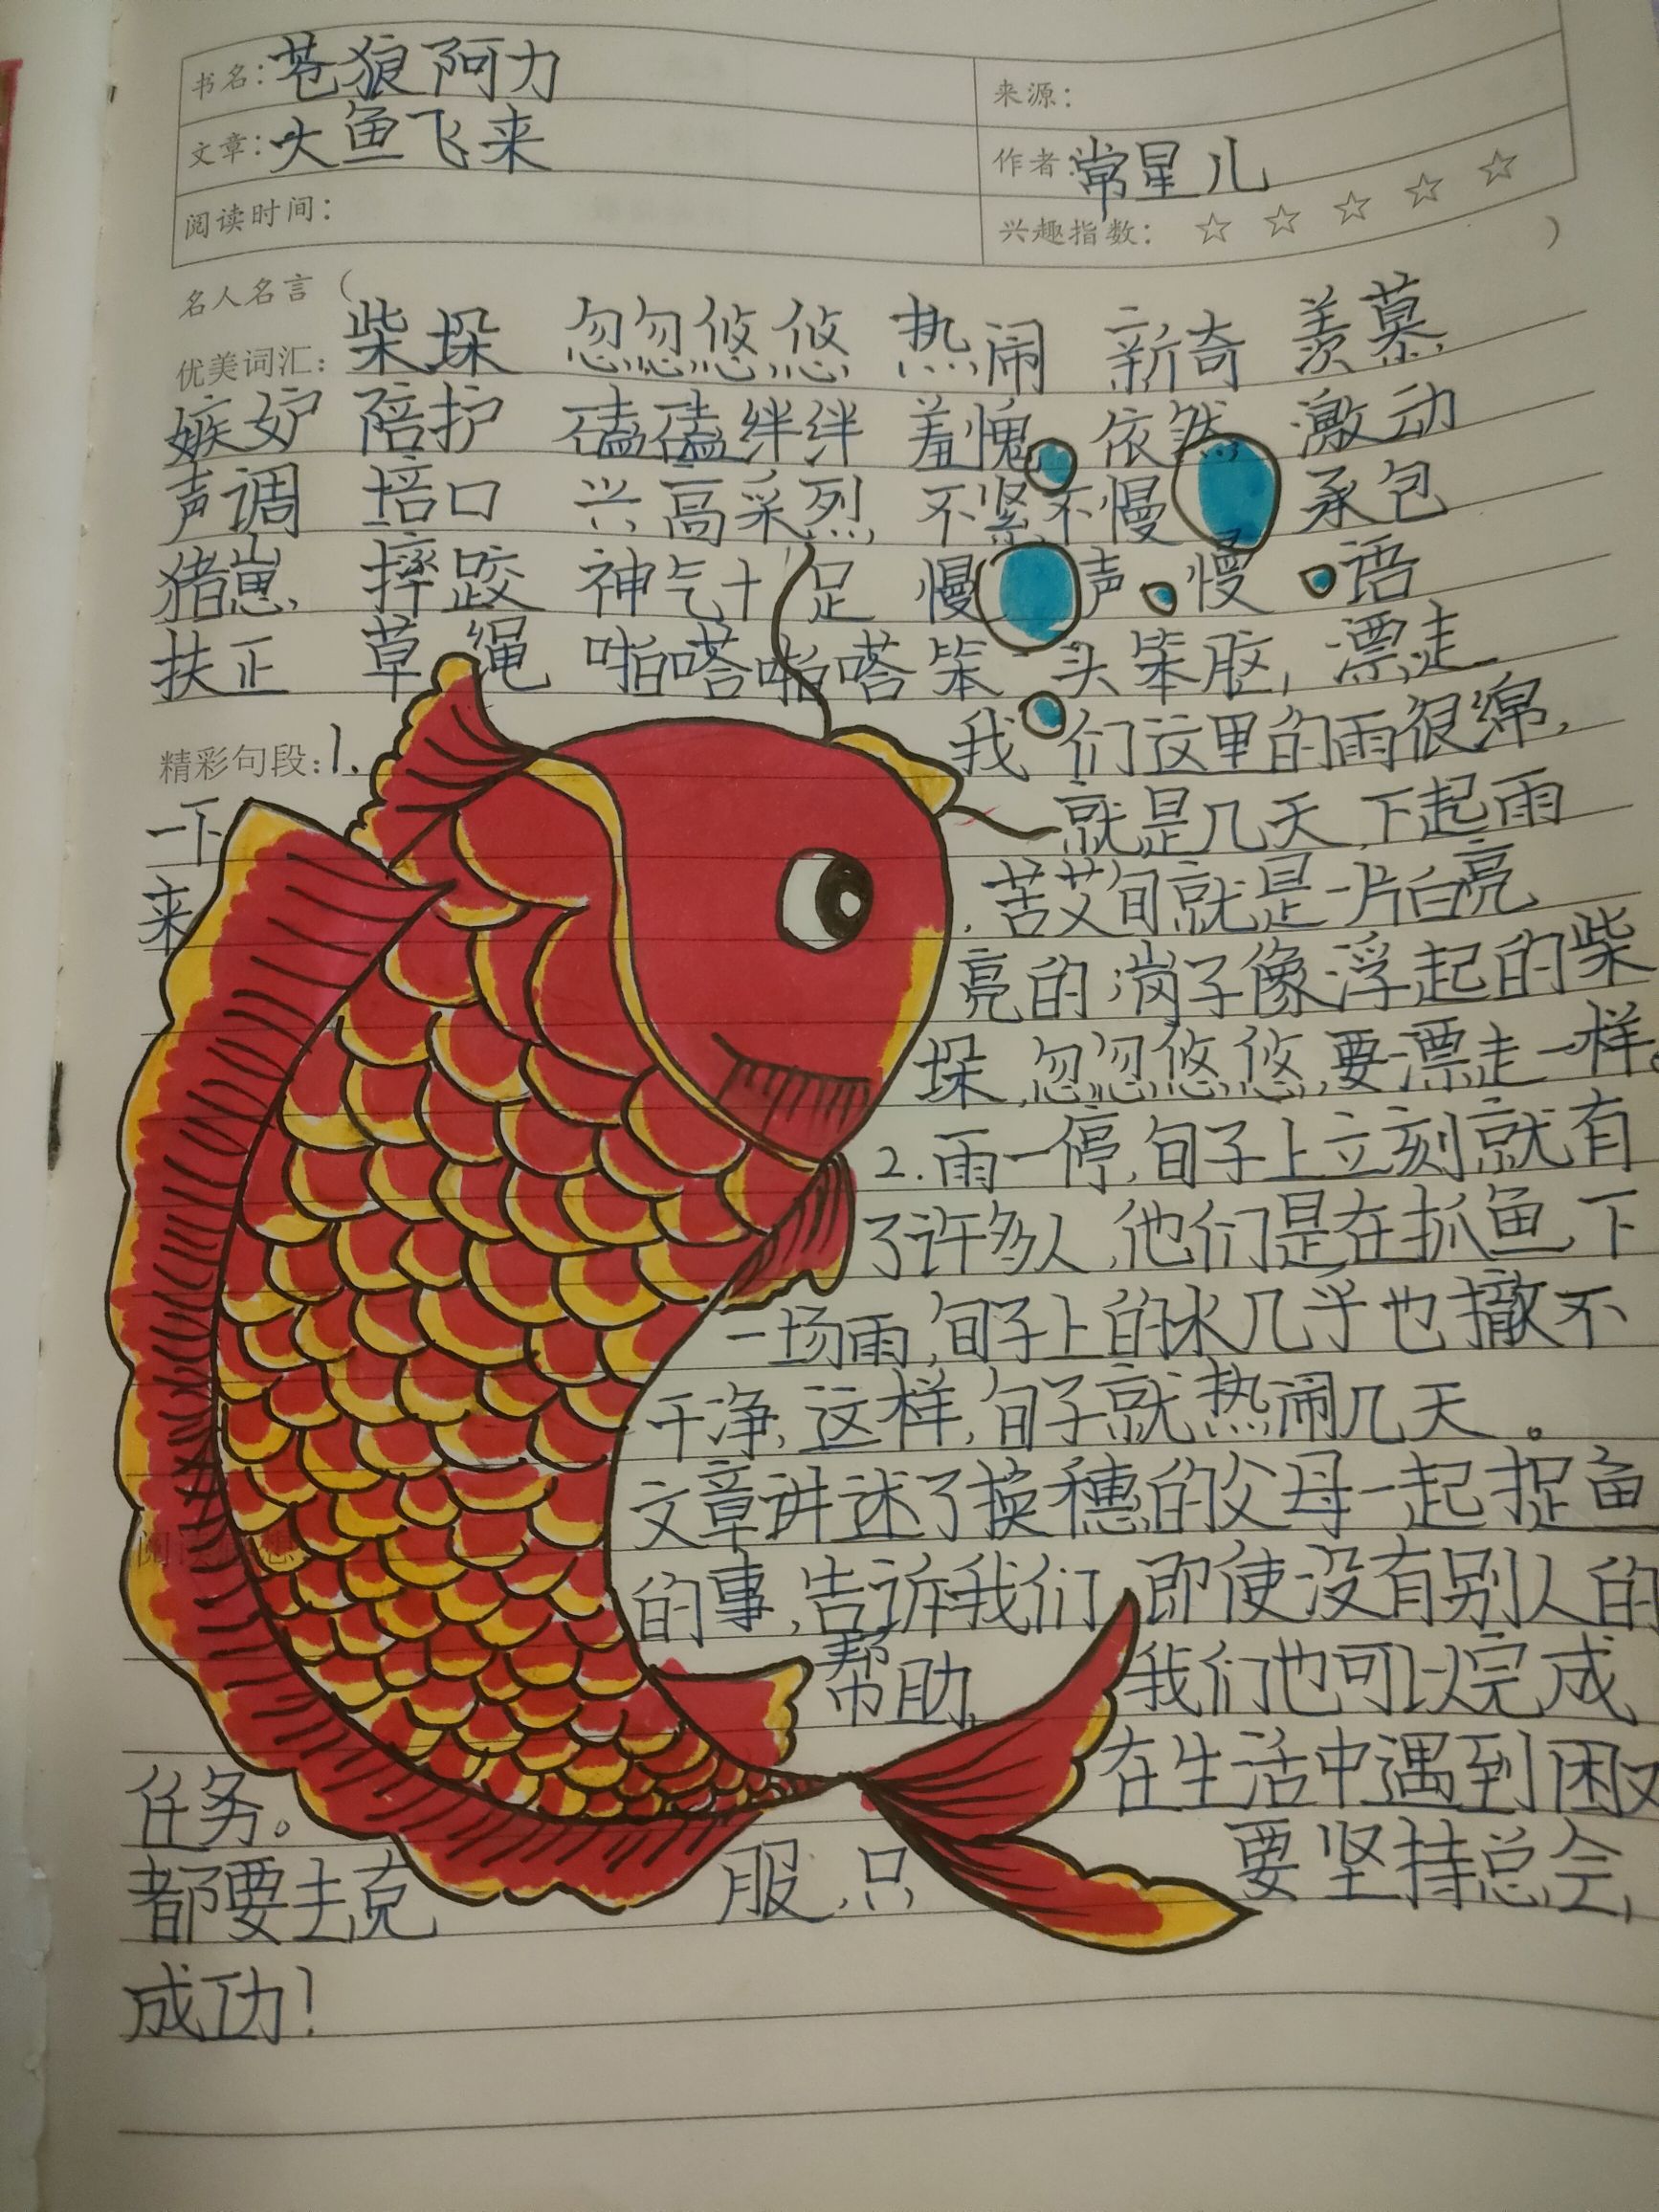 书名：苍狼阿力
来源：
文章：大鱼飞来
作者：常星儿
阅读时间：
兴趣指数：☆ ☆ ☆ ☆ ☆
名人名言（ ）
优美词汇：柴垛 忽忽悠悠 热闹 新奇 羡慕
嫉妒 陪护 磕磕绊绊 羞愧 依然 激动
声调 培口 兴高采烈 不紧不慢 承包
猪崽 摔跤 神气十足 慢声慢语
扶正 草绳 啪嗒啪嗒 笨头笨脑，漂走
精彩句段：1. 我们这里的雨很绵，
一下就是几天，下起雨
来，苦艾甸就是一片白亮
亮的，岗子像浮起的柴
垛，忽忽悠悠，要漂走一样。
2.雨一停，甸子上立刻就有
了许多人，他们是在抓鱼，下
一场雨，甸子上的水几乎也撤不
干净，这样，甸子就热闹几天。
文章讲述了换穗的父母一起捉鱼
的事，告诉我们，即使没有别人的
帮助，我们也可以完成
任务。在生活中遇到困
都要去克服，只要坚持总会，
成功！